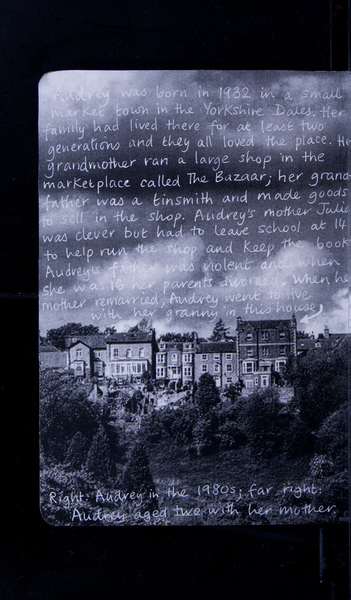 Audrey was born in 1932 in a small
market town in the Yorkshire Dales. Her
family had lived there for at least two
generations and they all loved the place. He
grandmother ran a large shop in the
marketplace called The Bazaar; her grand
father was a tinsmith and made goods
to sell in the shop. Audrey's mother Julie
was clever but had to leave school at 14
to help run the shop and keep the book
Audrey's father was violent and when
she was 16 her parents divorced. When he
mother remarried, Audrey went to live
with her granny in this house.
Right: Audrey in the 1980s; far right:
Audrey aged two with her mother.